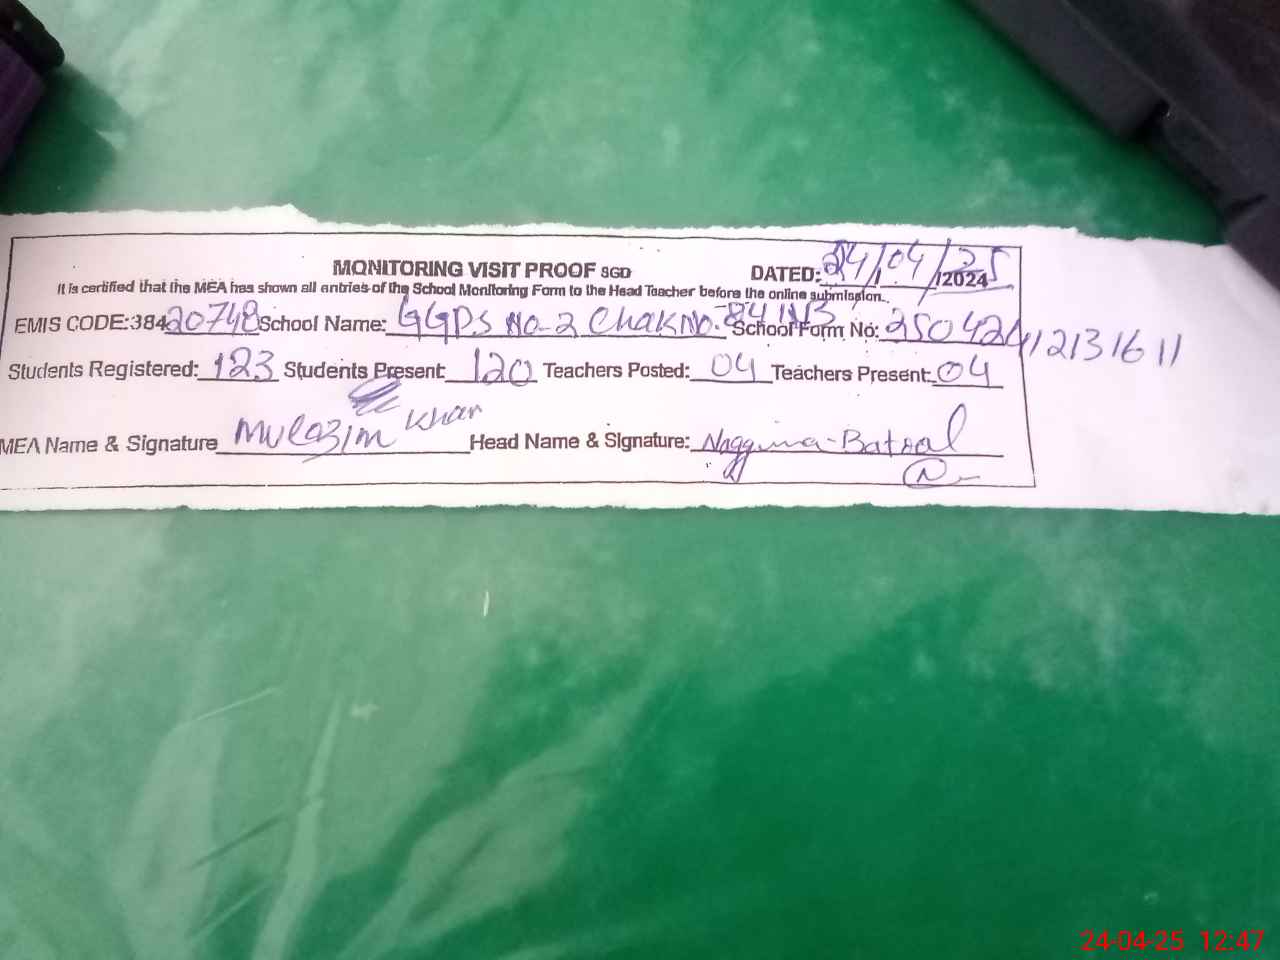 MONITORING VISIT PROOF SGD DATED: 24/04/25 /2024
It is certified that the MEA has shown all entries of the School Monitoring Form to the Head Teacher before the online submission.
EMIS CODE:38420748 School Name: GGPS No-2 Chak No. 84 School Form No: 25042412131611
Students Registered: 123 Students Present: 120 Teachers Posted: 04 Teachers Present: 04
MEA Name & Signature Mulazim Khan Head Name & Signature: Naggina-Batool
24-04-25 12:47